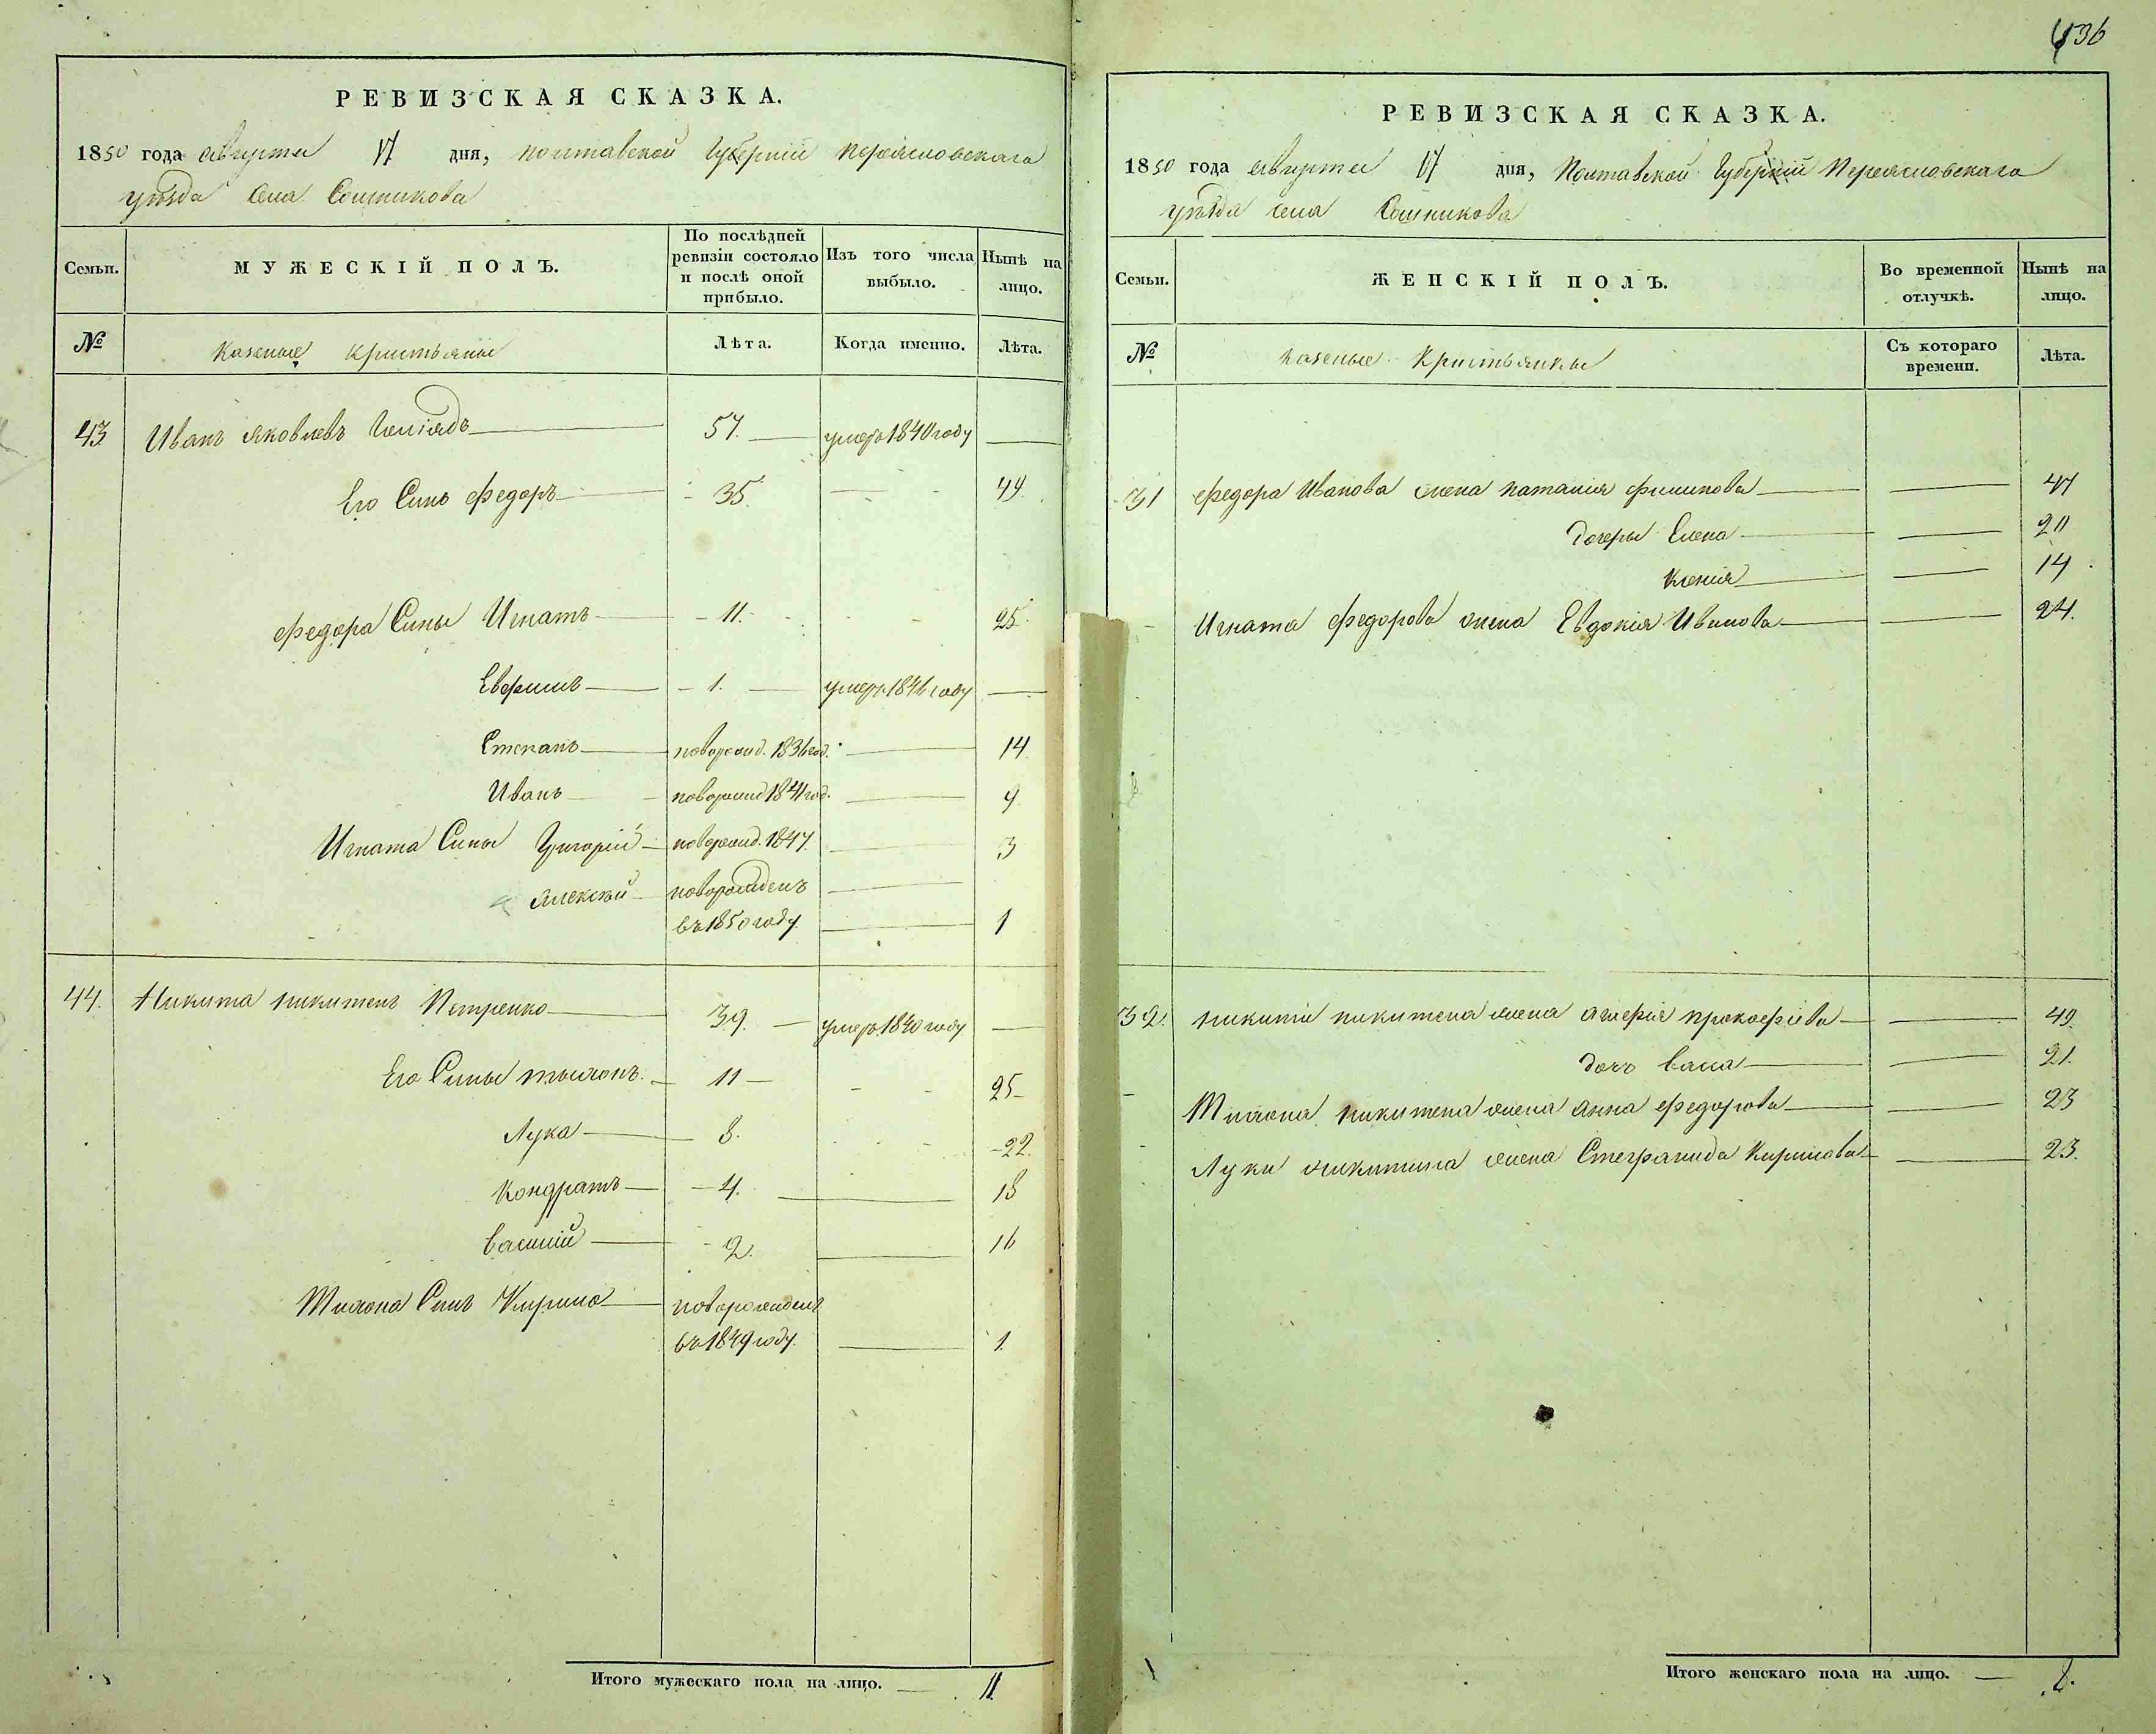 436
РЕВИЗСКАЯ СКАЗКА.
1850 года августа 17 дня, полтавской Губерній переясловскаго
уѣзда села Сошникова
Семьи.
МУЖЕСКІЙ ПОЛЪ.
По послѣдней ревизіи состояло и послѣ оной прибыло.
Изъ того числа выбыло.
Нынѣ на лицо.
№
казеные кристьяны
Лѣта.
Когда именно.
Лѣта.
43 Иванъ яковлевъ 57. умеръ 1840 году
Его Синъ Федоръ 35. 49.
Федора Сины Игнатъ 11. 25.
Евфимъ 1. умеръ 1846 году
Степанъ новорожд. 1836 год. 14
Иванъ новорожд 1841 год. 9
Игната Сины Григорій новорожд. 1847. 3
Алексѣй новорожденъ
въ 1850 году 1
44. Никита никитенъ Петренко 39. умеръ 1840 году
Его Сины тымонъ. 11 25
Лука 8. 22.
Кондратъ 4. 18
василій 2. 16
Тимона Синъ Кирило новорожденъ
въ 1849 году. 1.
Итого мужескаго пола на лицо. 11.
РЕВИЗСКАЯ СКАЗКА.
1850 года августа 17 дня, Полтавской Губерній Переясловскаго
уѣзда села Сошникова
Семьи.
ЖЕНСКІЙ ПОЛЪ.
Во временной отлучкѣ.
Нынѣ на лицо.
№
казеные кристьянкы
Съ котораго времени.
Лѣта.
31 Федора Иванова жена наталия филипова 47
дочеры Елена 20
Ксенія 14
Игната Федорова жена Евдокія Иванова 24.
32. никити никитена жена прокофіева 49.
дочь васа 21.
Тимона никитена жена анна федорова 23
Луки никитина жена Кирилова 23.
Итого женскаго пола на лицо.